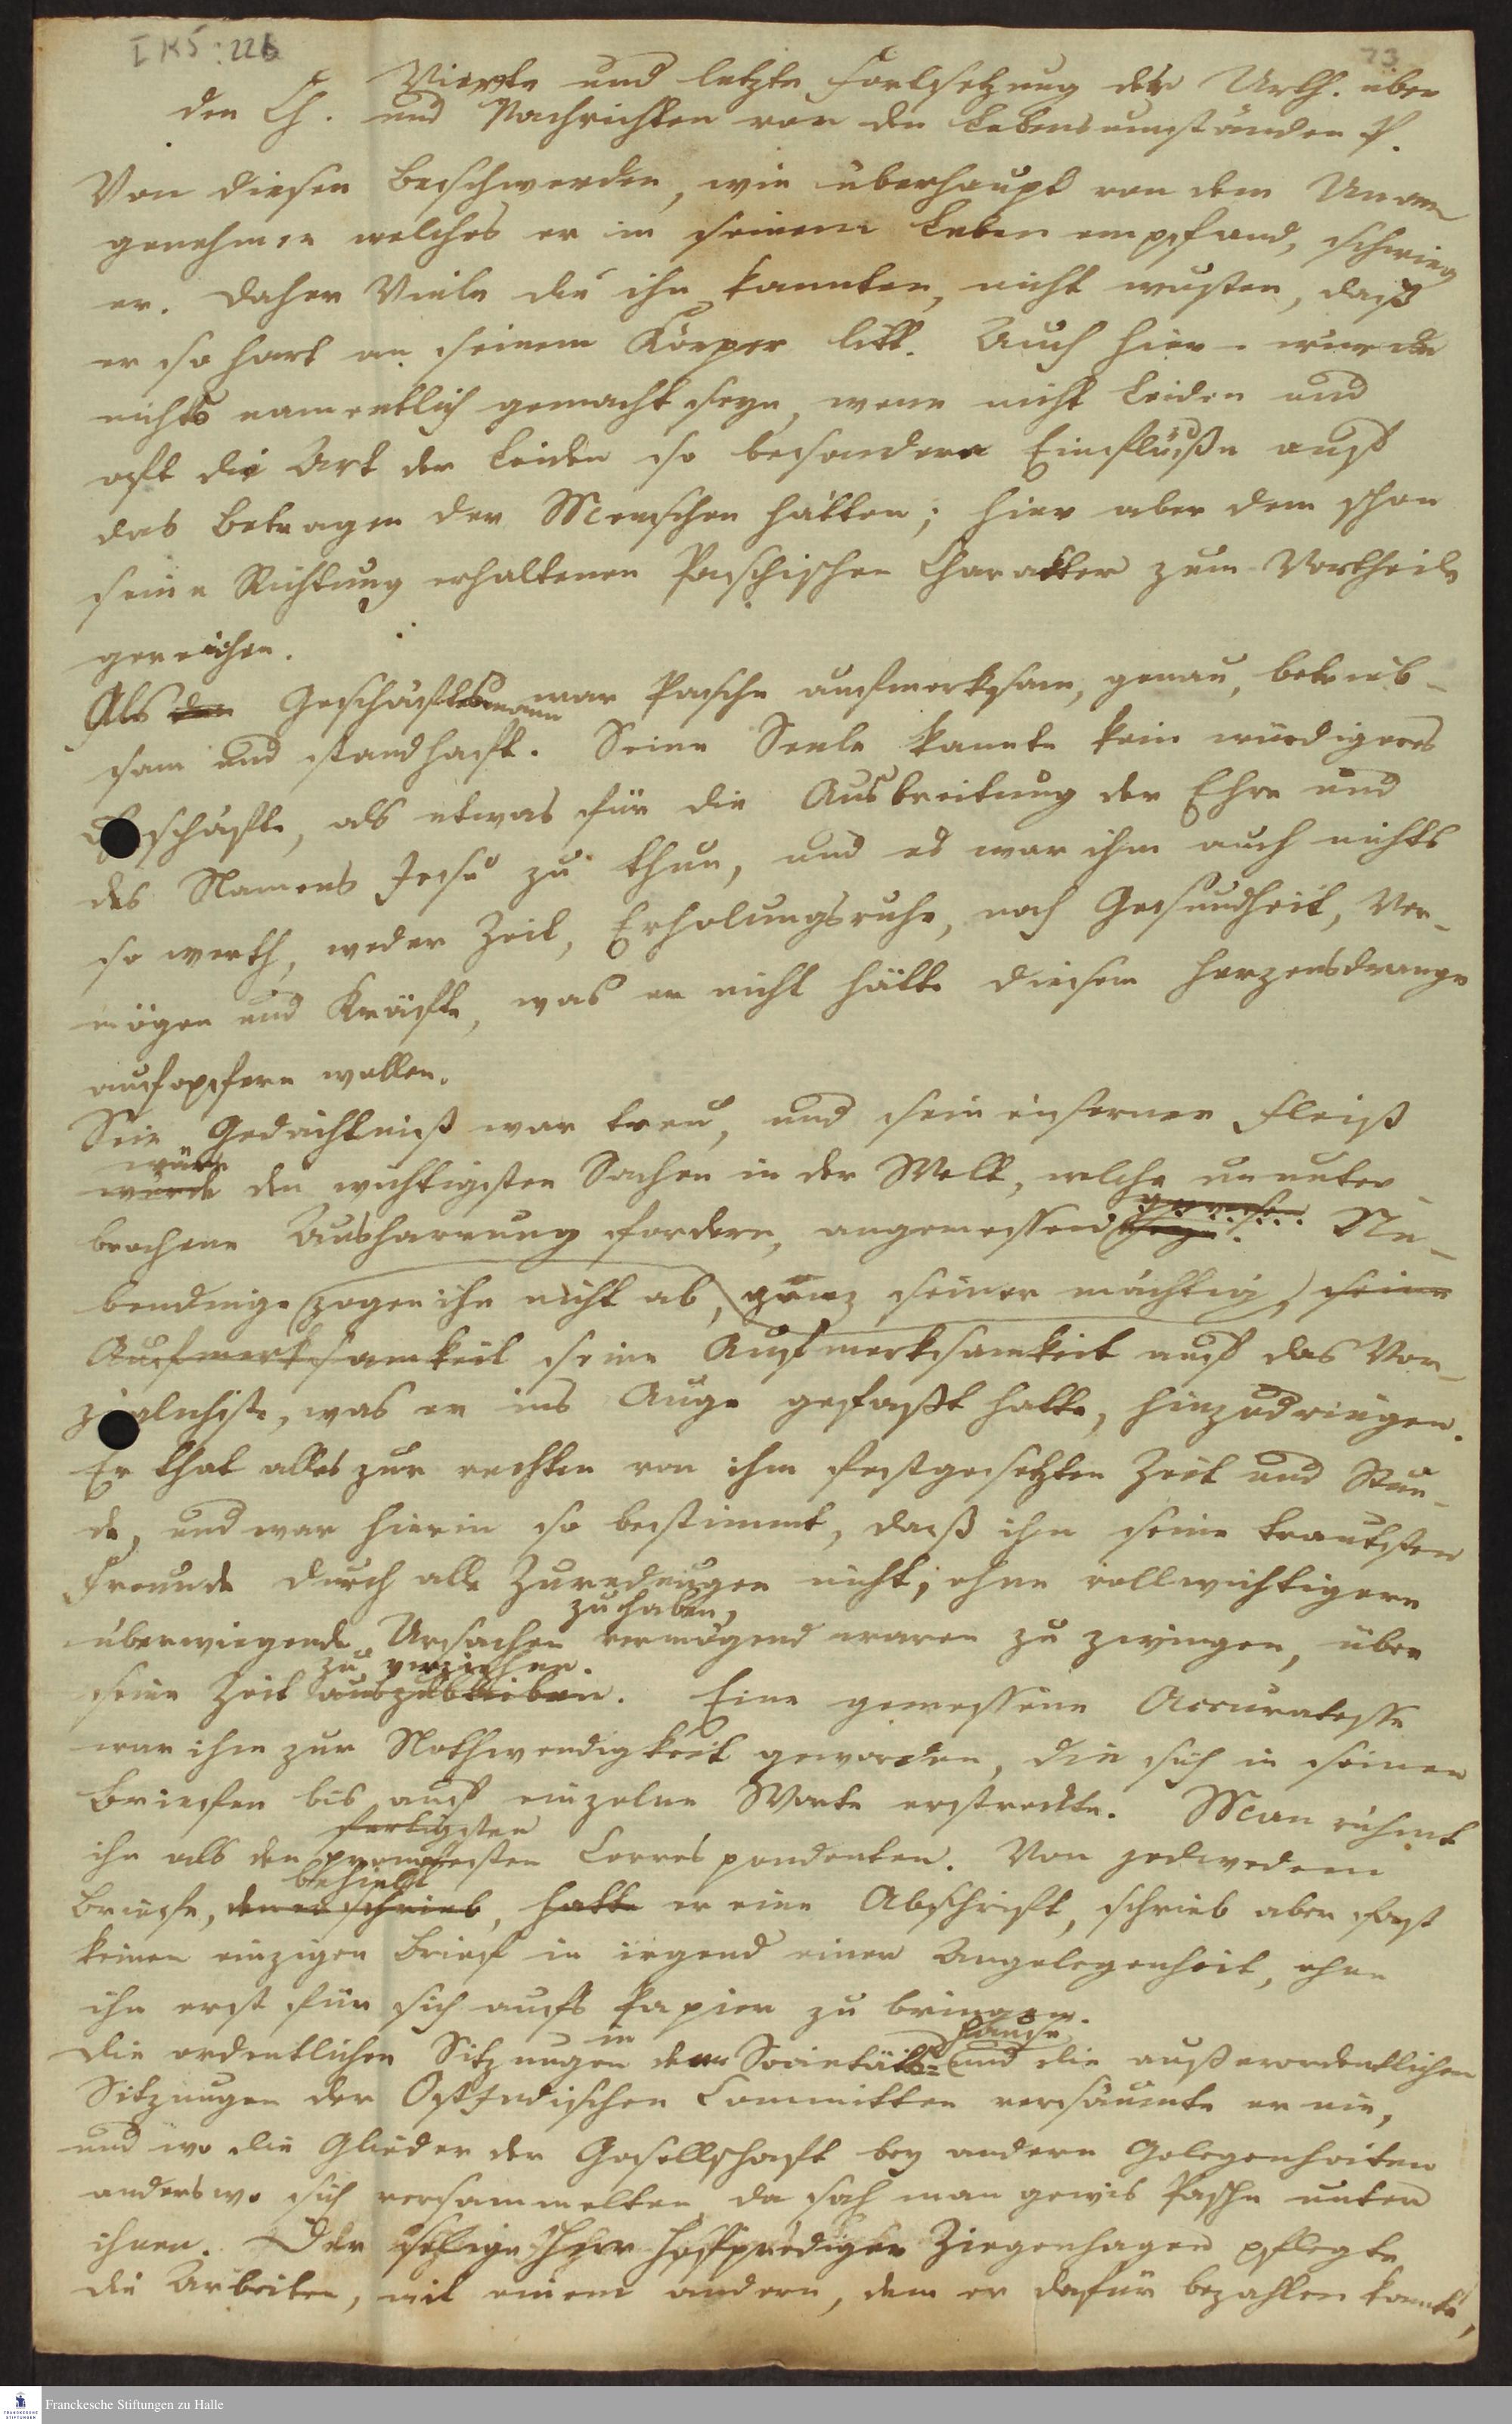 I K 5 : 22b
73
Vierte und letzte Fortsetzung der Urth. über
den Ch. und Nachrichten von den Lebensumständen P.
Von diesen Beschwerden, wie überhaupt von dem Unan-
genehmen welches er in seinem Leben empfand, schwieg
er. Daher Viele die ihn kannten, nicht wusten, daß
er so hart an seinem Körper litt. Auch hier wurde
nichts namentlich gemacht seyn, wenn nicht Leiden und
oft die Art der Leiden so besondere Einflüße auf
das Betragen der Menschen hätten; hier aber dem schon
seine Richtung erhaltenen Paschischen Charakter zum Vortheile
gereichen.
Als den Geschäftsmann war Pasche aufmerksam, genau, betrieb-
sam und standhaft. Seine Seele kannte kein würdigeres
Geschäfte, als etwas für die Ausbreitung der Ehre und
des Namens Jesu zu thun, und es war ihm auch nichts
so werth, weder Zeit, Erholungsruhe, noch Gesundheit, Ver-
mögen und Kräfte, was er nicht hätte diesem Herzensdrange
aufopfern wollen.
Sein Gedächtniß war treu, und sein eiserner Fleiß
wäre
würde den wichtigsten Sachen in der Welt, welche ununter-
gewesen
brochene Ausharrung fordern, angemessen seyn. Ne-
bendinge zogen ihn nicht ab, ganz seiner mächtig, seine
Aufmerksamkeit seine Aufmerksamkeit auf das Vor-
züglichste, was er ins Auge gefaßt hatte, hinzudringen.
Er that alles zur rechten von ihm festgesetzten Zeit und Stun-
de, und war hierin so bestimmt, daß ihn seine trautsten
Freunde durch alle Zuredungen nicht, ohne vollwichtigere
zu haben,
überwiegende Ursachen vermögend waren zu zwingen, über
zu verziehen.
seine Zeit auszubleiben. Eine gewessene Accuratesse
war ihm zur Nothwendigkeit geworden, die sich in seinen
Briefen bis auf einzelne Worte erstreckte. Man rühmt
fertigsten
ihn als den promptesten Correspondenten. Von jedwedem
behielt
Briefe, den er schrieb, hatte er eine Abschrift, schrieb aber fast
keinen einzigen Brief in irgend einer Angelegenheit, ohne
ihn erst für sich aufs Papier zu bringen.
in Hause
Die ordentlichen Sitzungen dem Societäts- und die außerordentlichen
Sitzungen der Ostindischen Committee versäumte er nie,
und wo die Glieder der Gesellschaft bey andern Gelegenheiten
anderswo sich versammelten, da sah man gewis Pasche unter
ihnen. Der selige Herr Hofprediger Ziegenhagen pflegte
die Arbeiten, mit einem andern, dem er dafür bezahlen konnte,
Franckesche Stiftungen zu Halle